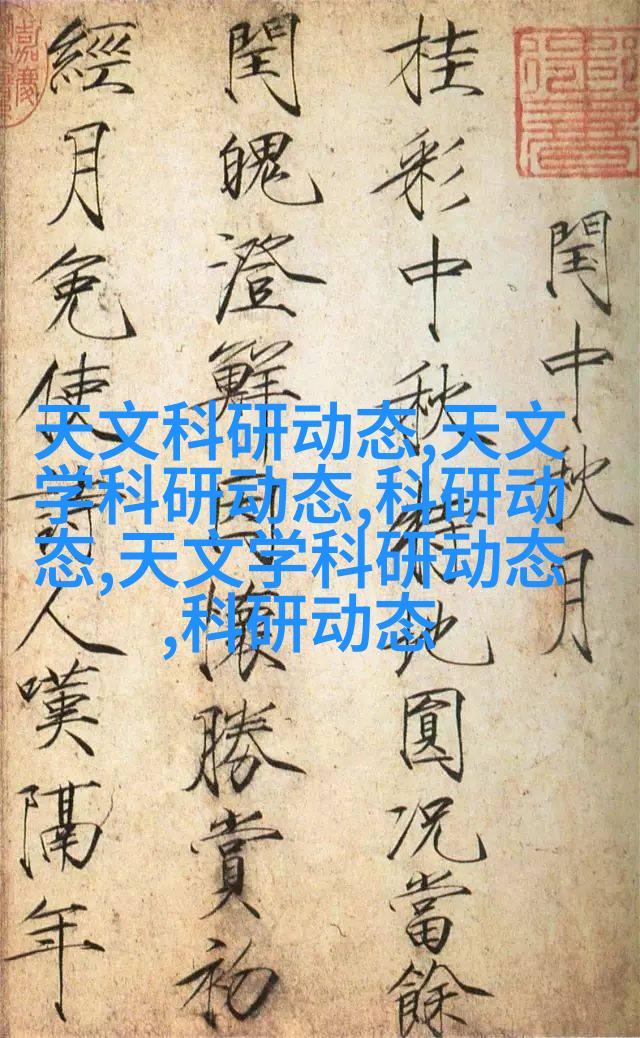 閏中秋月
桂彩中秋特地圓況當餘
閏魄澄鮮因懷勝賞初
經月免使詩人嘆隔年
天文科研动态,天文
学科研动态,科研动
态,天文学科研动态
,科研动态